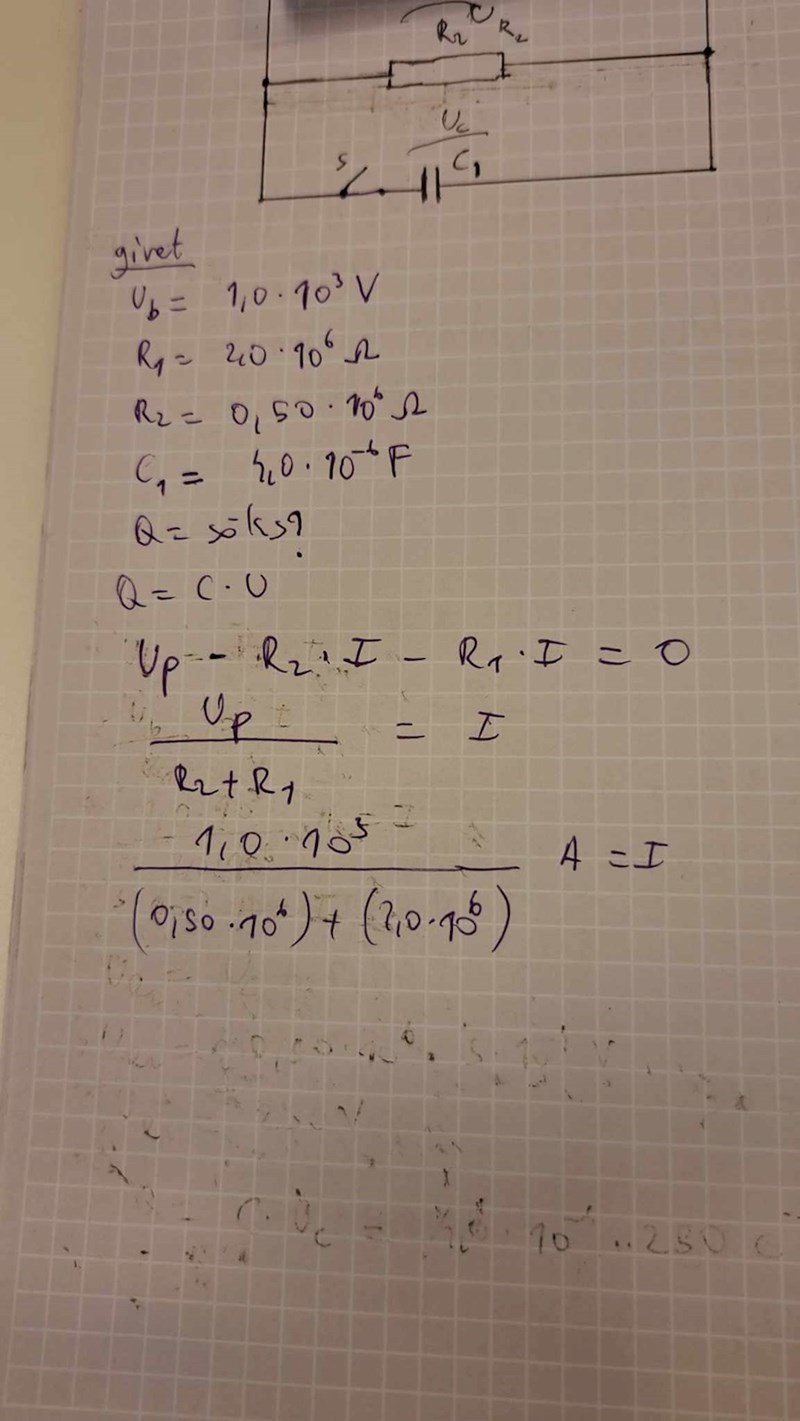 R₂ U R₂
U_c
S C₁
givet
U_b = 1,0 · 10³ V
R₁ = 2,0 · 10⁶ Ω
R₂ = 0,50 · 10⁶ Ω
C₁ = 4,0 · 10⁻⁶ F
Q = söks?
Q = C · U
U_p - R₂ · I - R₁ · I = 0
U_p / (R₂ + R₁) = I
1,0 · 10³ / ((0,50 · 10⁶) + (2,0 · 10⁶)) A = I